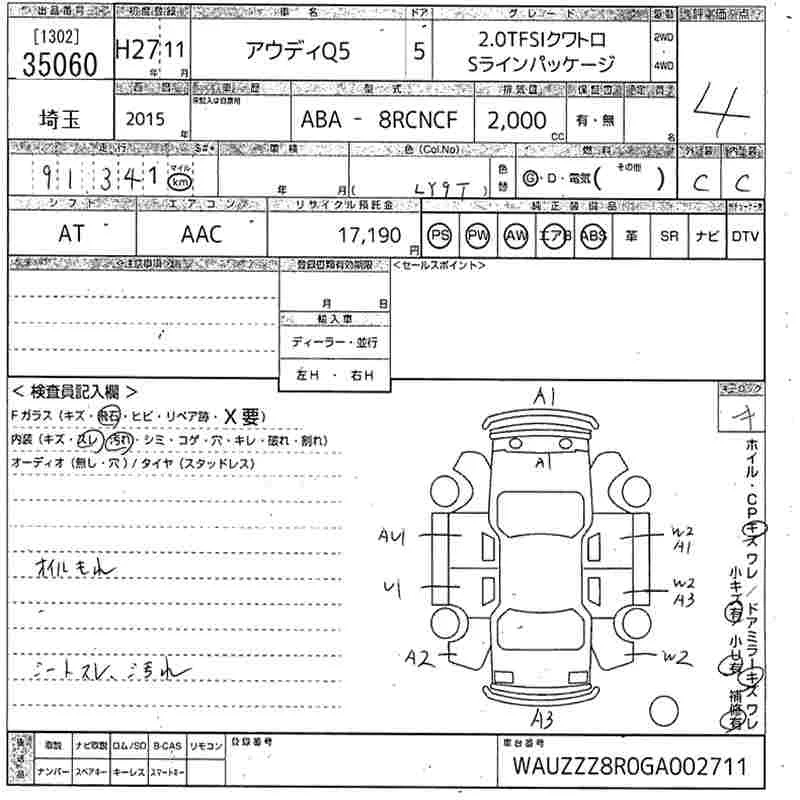 出品番号 初度登録 車名 ドア グレード 駆動 評価点
[1302]
35060
H27 11
年 月
アウディQ5
5
2.0TFSIクワトロ
Sラインパッケージ
2WD
4WD
4
西暦 車歴 型式 排気量 保証書 定員
埼玉
2015 年
ABA - 8RCNCF
2,000 CC
有・無
名
走行 車検 色(Col.No) 燃料 外装 内装
91 341
マイル
km
年 月
( LY9T )
色替
G・D・電気( その他 )
C C
シフト エアコン リサイクル預託金 純正装備品
AT AAC 17,190 円
PS PW AW エアB ABS 革 SR ナビ DTV
注意事項 登録書類有効期限 <セールスポイント>
月 日
輸入車
ディーラー・並行
左H ・ 右H
<検査員記入欄>
Fガラス(キズ・飛石・ヒビ・リペア跡・X要)
内装(キズ・スレ・汚れ・シミ・コゲ・穴・キレ・破れ・割れ)
オーディオ(無し・穴)/タイヤ(スタッドレス)
オイルもれ
シートスレ、汚れ
A1
A1
AU1
U1
A2
W2
A1
W2
A3
W2
A3
キ
ホイル・CPキズ ワレ/ドアミラーキズ ワレ
小キズ有 小U有 補修有
後送品
取説 ナビ取説 ロム/SD B-CAS リモコン
ナンバー スペアキー キーレス スマートキー
登録番号
車台番号
WAUZZZ8R0GA002711